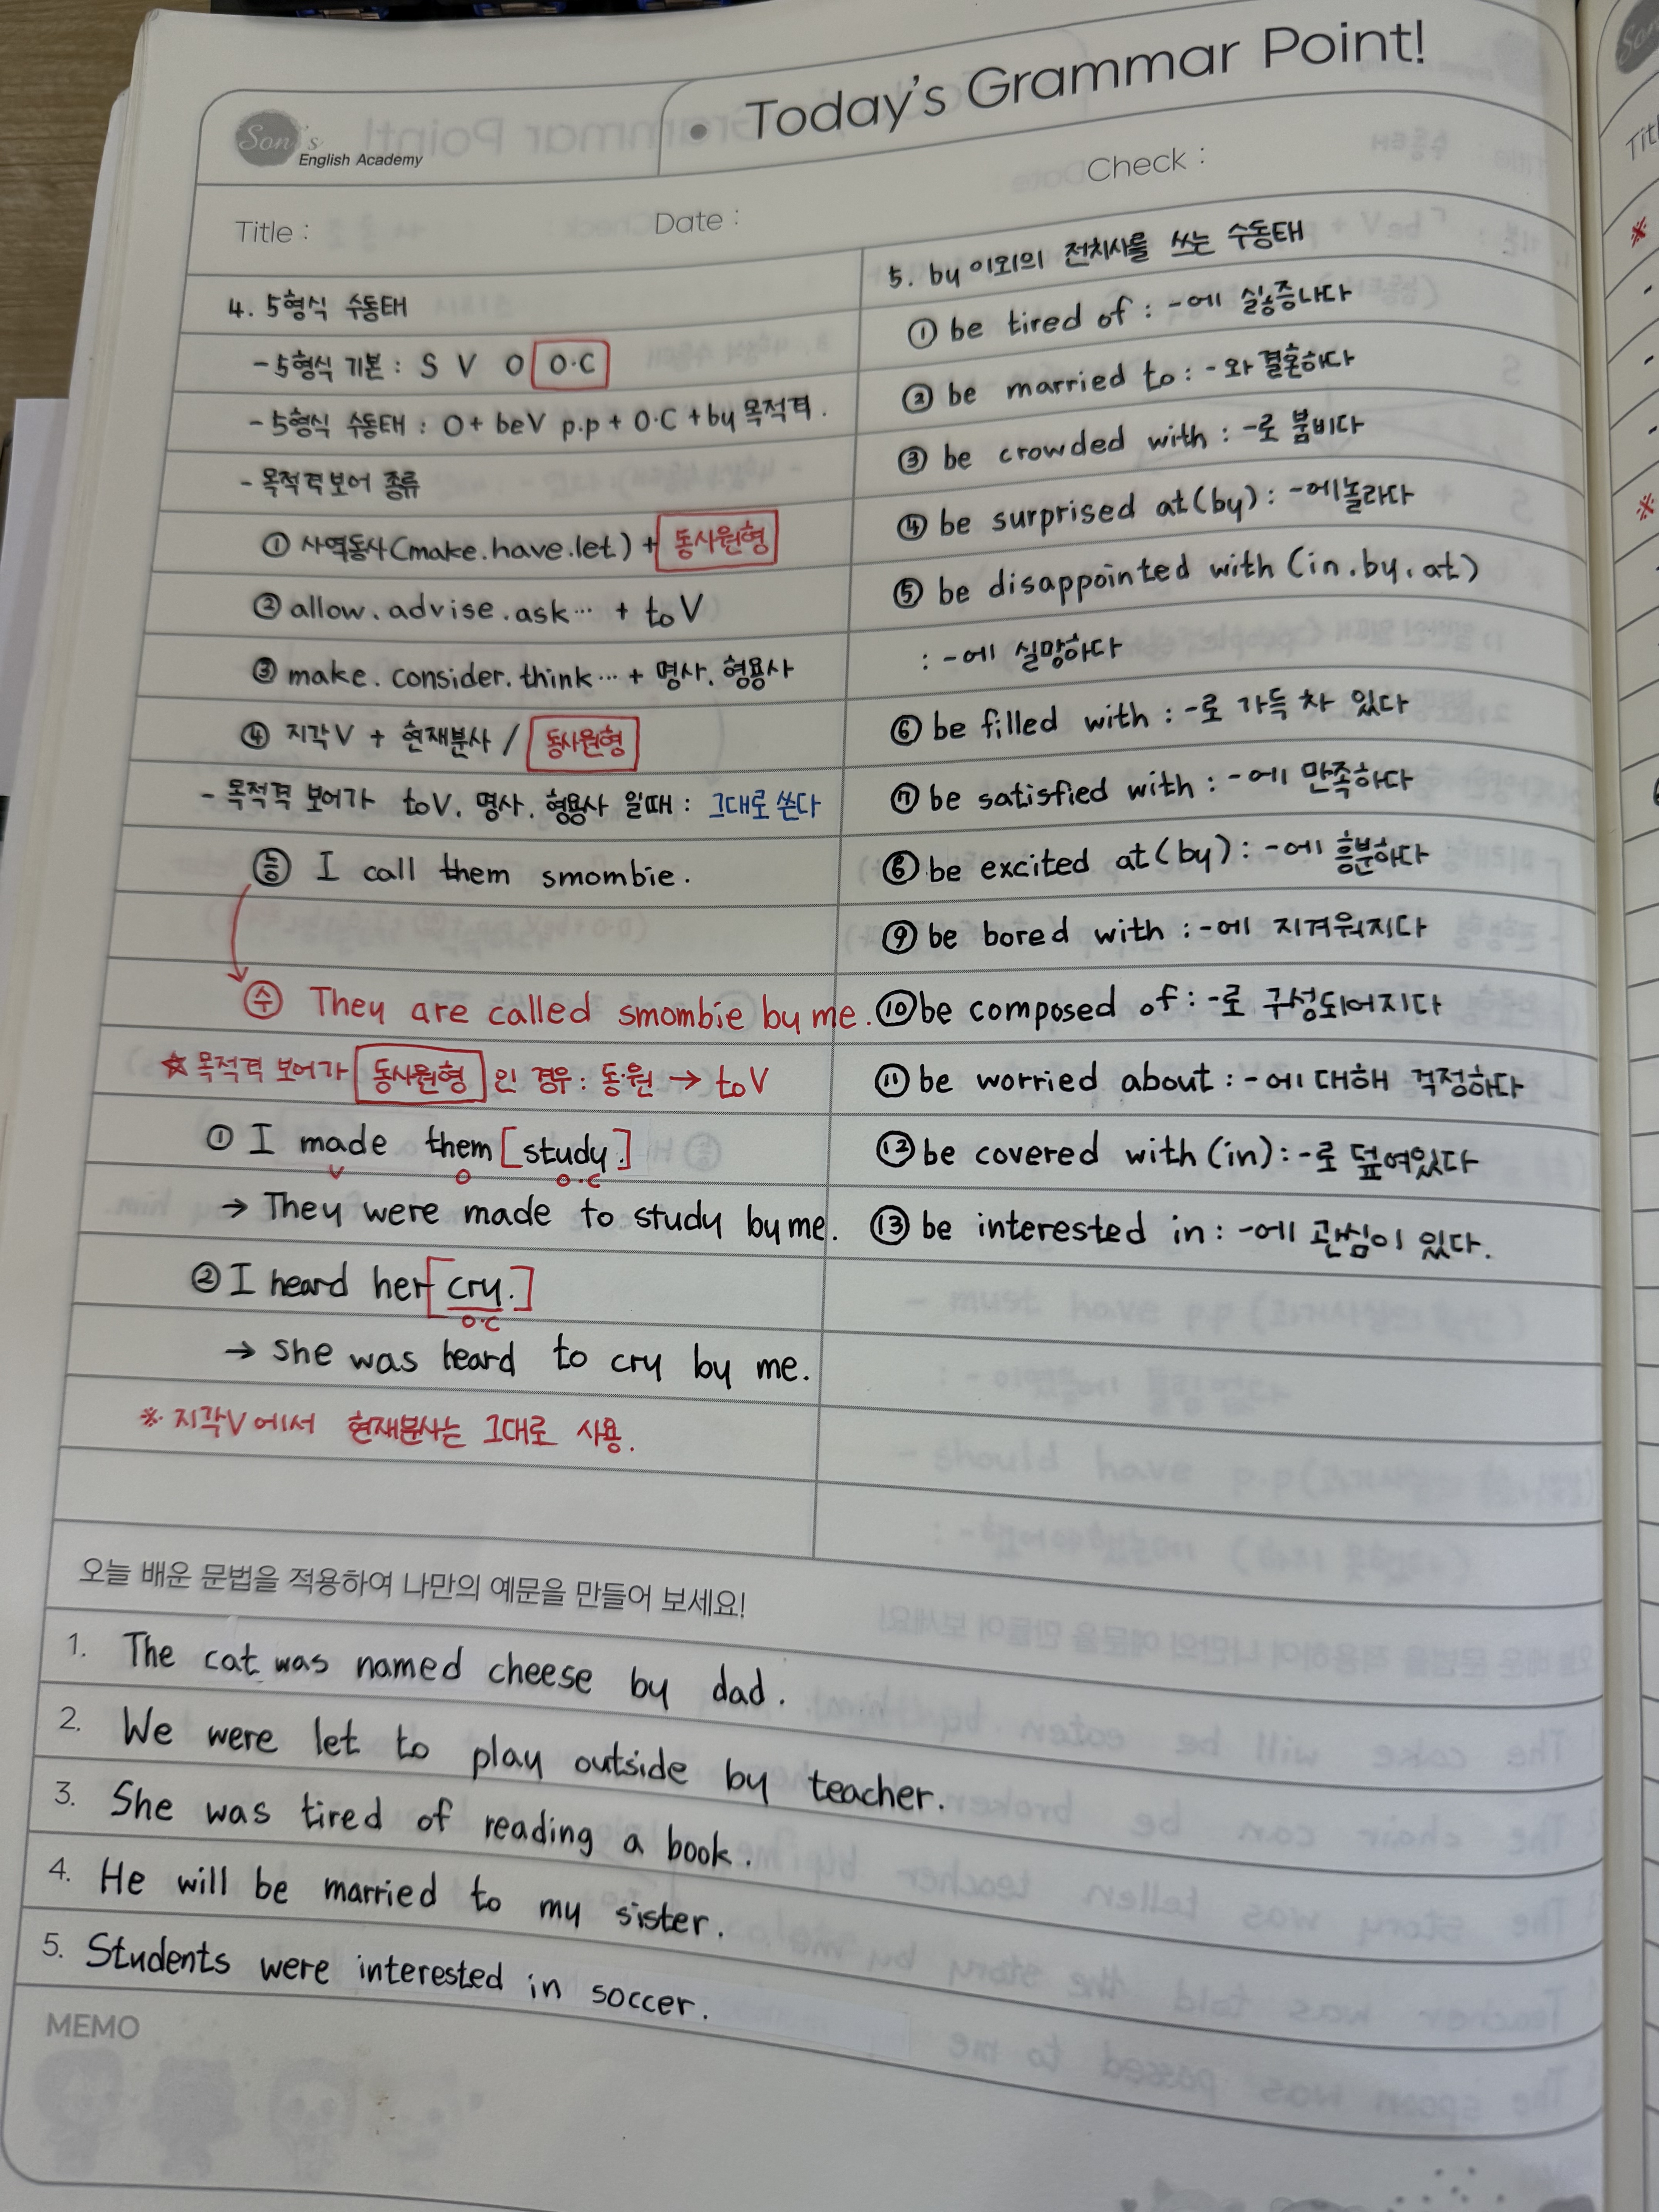 Today's Grammar Point!
Son's
English Academy
Title :
Date :
Check :
4. 5형식 수동태
- 5형식 기본 : S V O O·C
- 5형식 수동태 : O + beV p.p + O·C + by 목적격.
- 목적격보어 종류
① 사역동사(make.have.let) + 동사원형
② allow.advise.ask… + to V
③ make.consider.think… + 명사. 형용사
④ 지각V + 현재분사 / 동사원형
- 목적격 보어가 toV. 명사. 형용사 일때 : 그대로 쓴다
능 I call them smombie.
수 They are called smombie by me.
☆목적격 보어가 동사원형 인 경우 : 동·원 → to V
① I made them [study.]
V O O·C
→ They were made to study by me.
② I heard her [cry.]
O·C
→ She was heard to cry by me.
※ 지각V에서 현재분사는 그대로 사용.
5. by 이외의 전치사를 쓰는 수동태
① be tired of : -에 싫증나다
② be married to : -와 결혼하다
③ be crowded with : -로 붐비다
④ be surprised at(by) : -에놀라다
⑤ be disappointed with (in.by.at)
: -에 실망하다
⑥ be filled with : -로 가득 차 있다
⑦ be satisfied with : -에 만족하다
⑧ be excited at(by) : -에 흥분하다
⑨ be bored with : -에 지겨워지다
⑩ be composed of : -로 구성되어지다
⑪ be worried about : -에 대해 걱정하다
⑫ be covered with (in) : -로 덮여있다
⑬ be interested in : -에 관심이 있다.
오늘 배운 문법을 적용하여 나만의 예문을 만들어 보세요!
1. The cat was named cheese by dad.
2. We were let to play outside by teacher.
3. She was tired of reading a book.
4. He will be married to my sister.
5. Students were interested in soccer.
MEMO